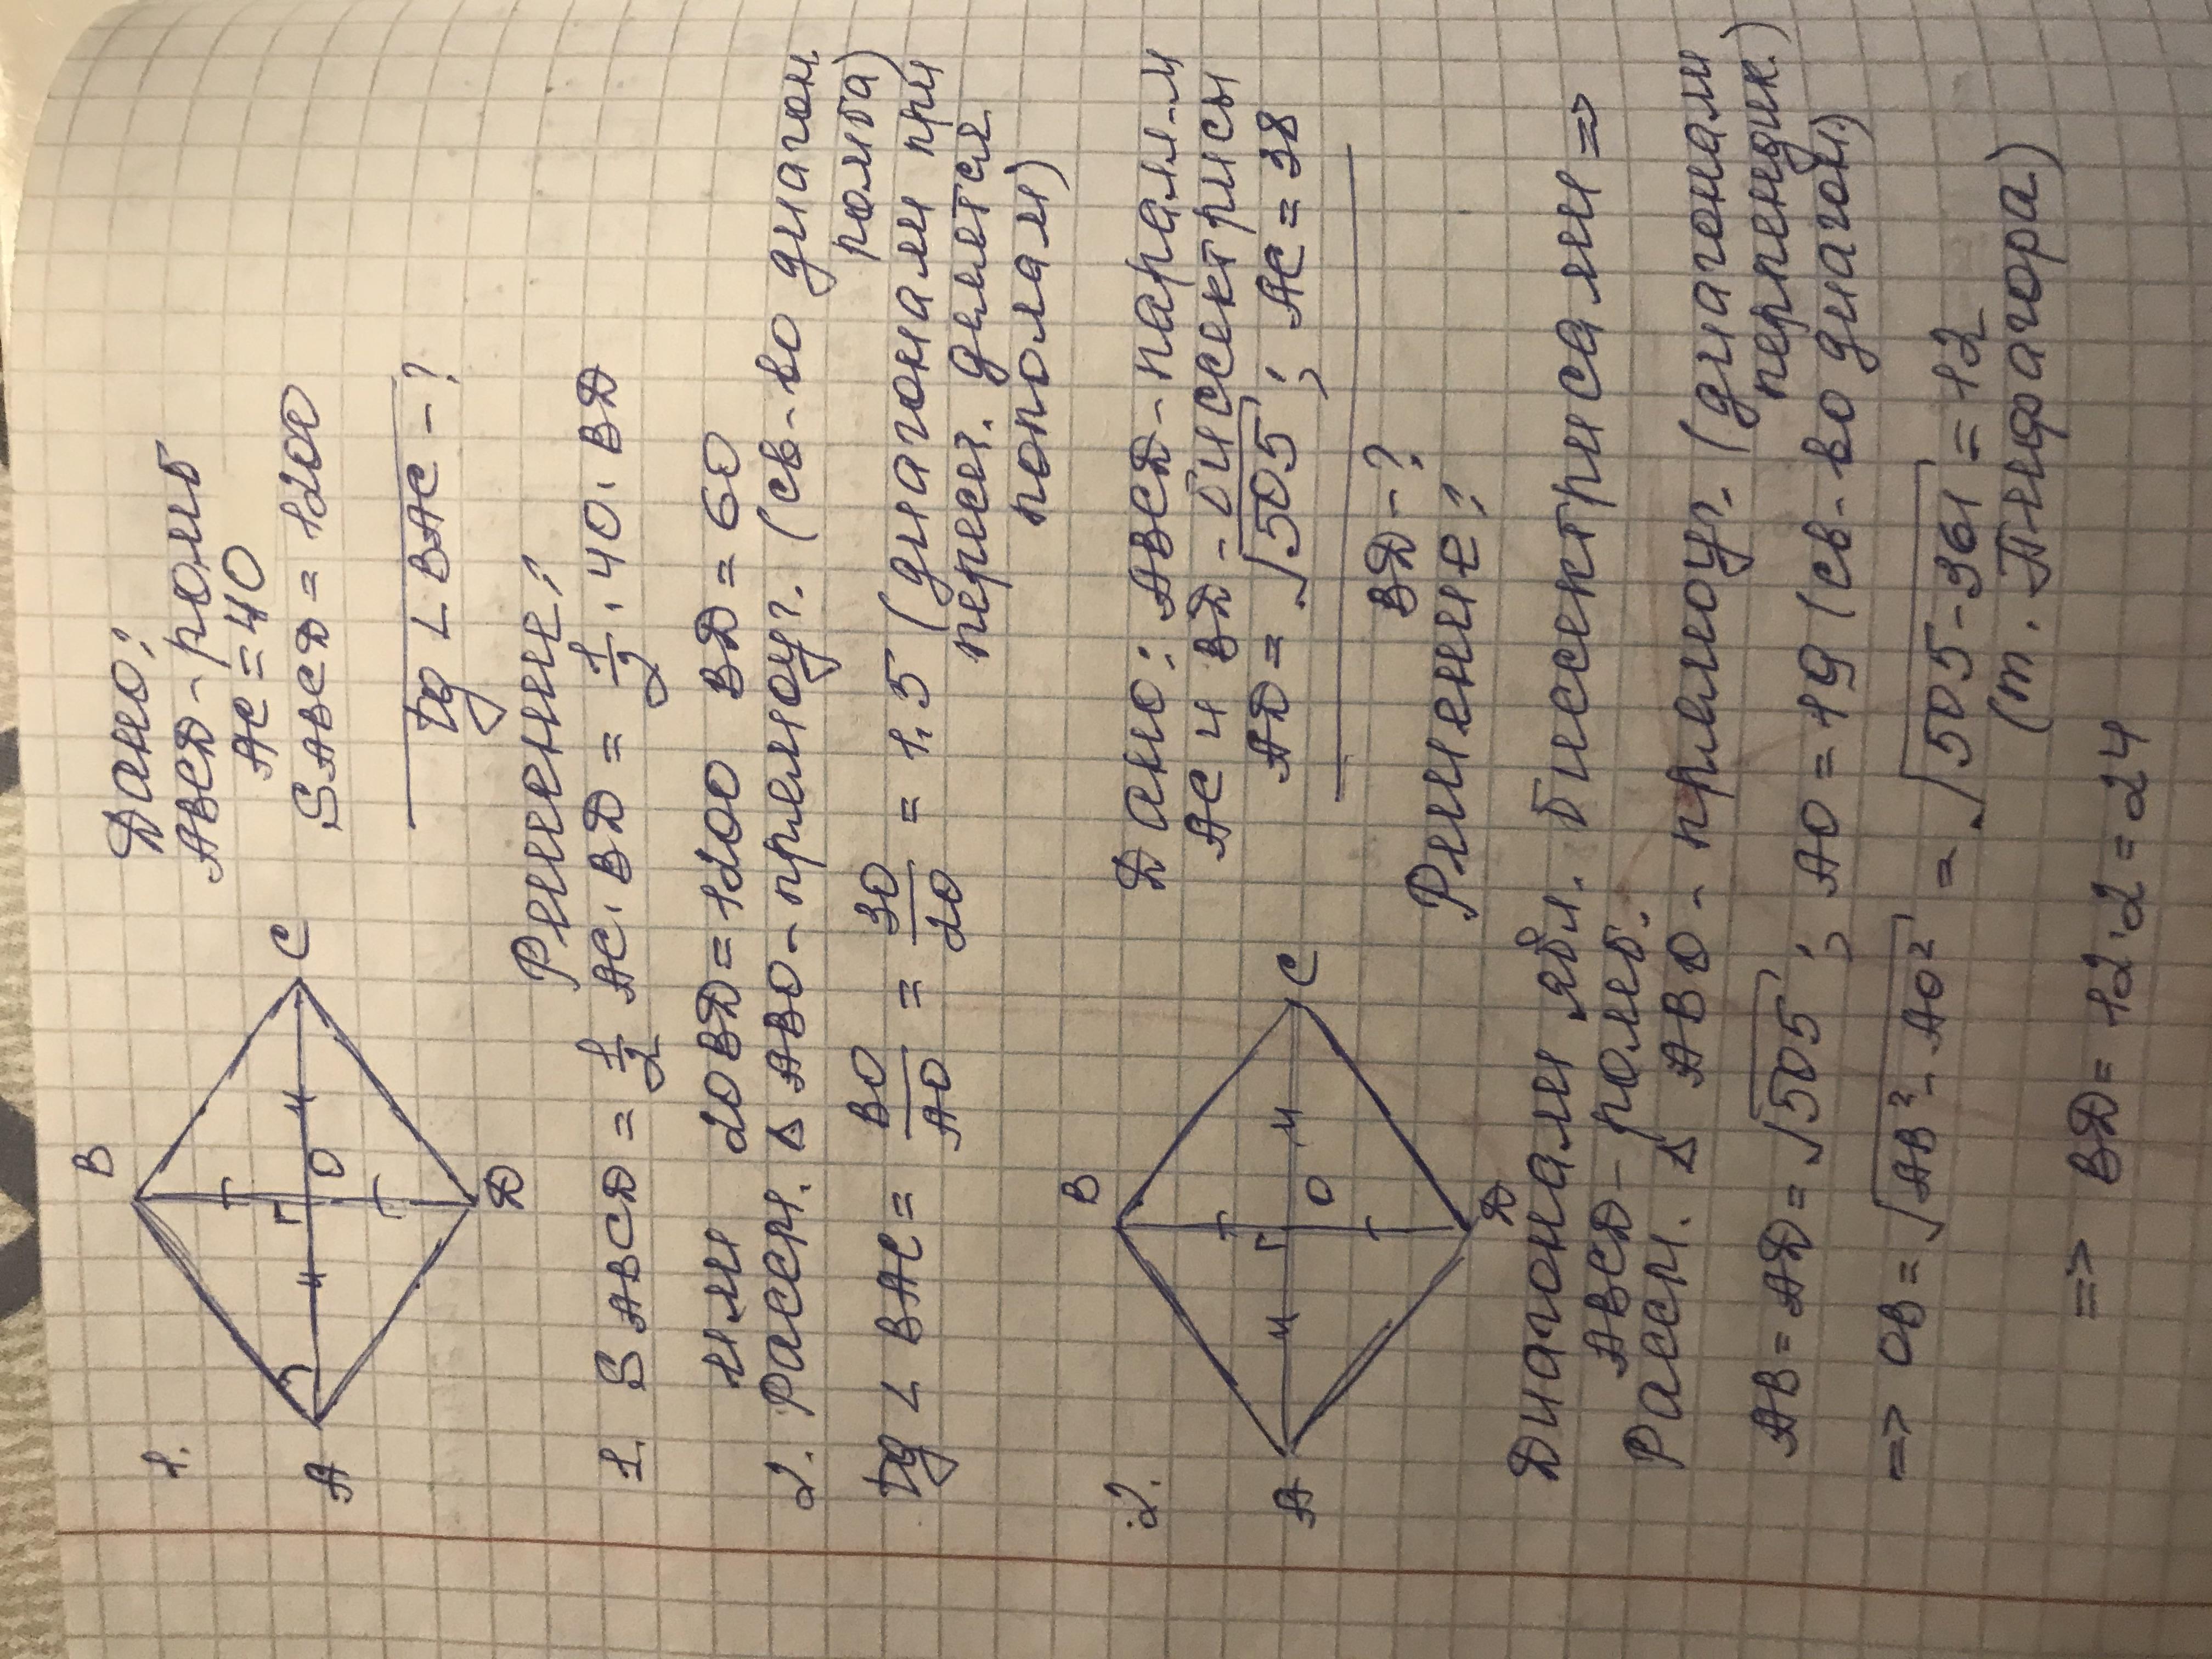 1.
B
A
O
C
D
Дано:
ABCD - ромб
AC = 40
SABCD = 1200
tg ∠ BAC - ?
Решение:
1. S ABCD = 1/2 AC · BD = 1/2 · 40 · BD
или 20BD = 1200 BD = 60
2. Рассм. Δ ABO - прямоуг. (св-во диагон.
ромба)
tg ∠ BAC = BO/AO = 30/20 = 1.5 (диагонали при
пересеч. делятся
пополам)
2.
B
A
O
C
D
Дано: ABCD - парал-м
AC и BD - биссектрисы
AD = √505 ; AC = 38
BD - ?
Решение:
Диагонали явл. биссектрисами =>
ABCD - ромб.
Рассм. Δ ABO - прямоуг. (диагонали
перпендик.)
AB = AD = √505 ; AO = 19 (св-во диагон.)
=> OB = √AB² - AO² = √505 - 361 = 12
(т. Пифагора)
=> BD = 12 · 2 = 24